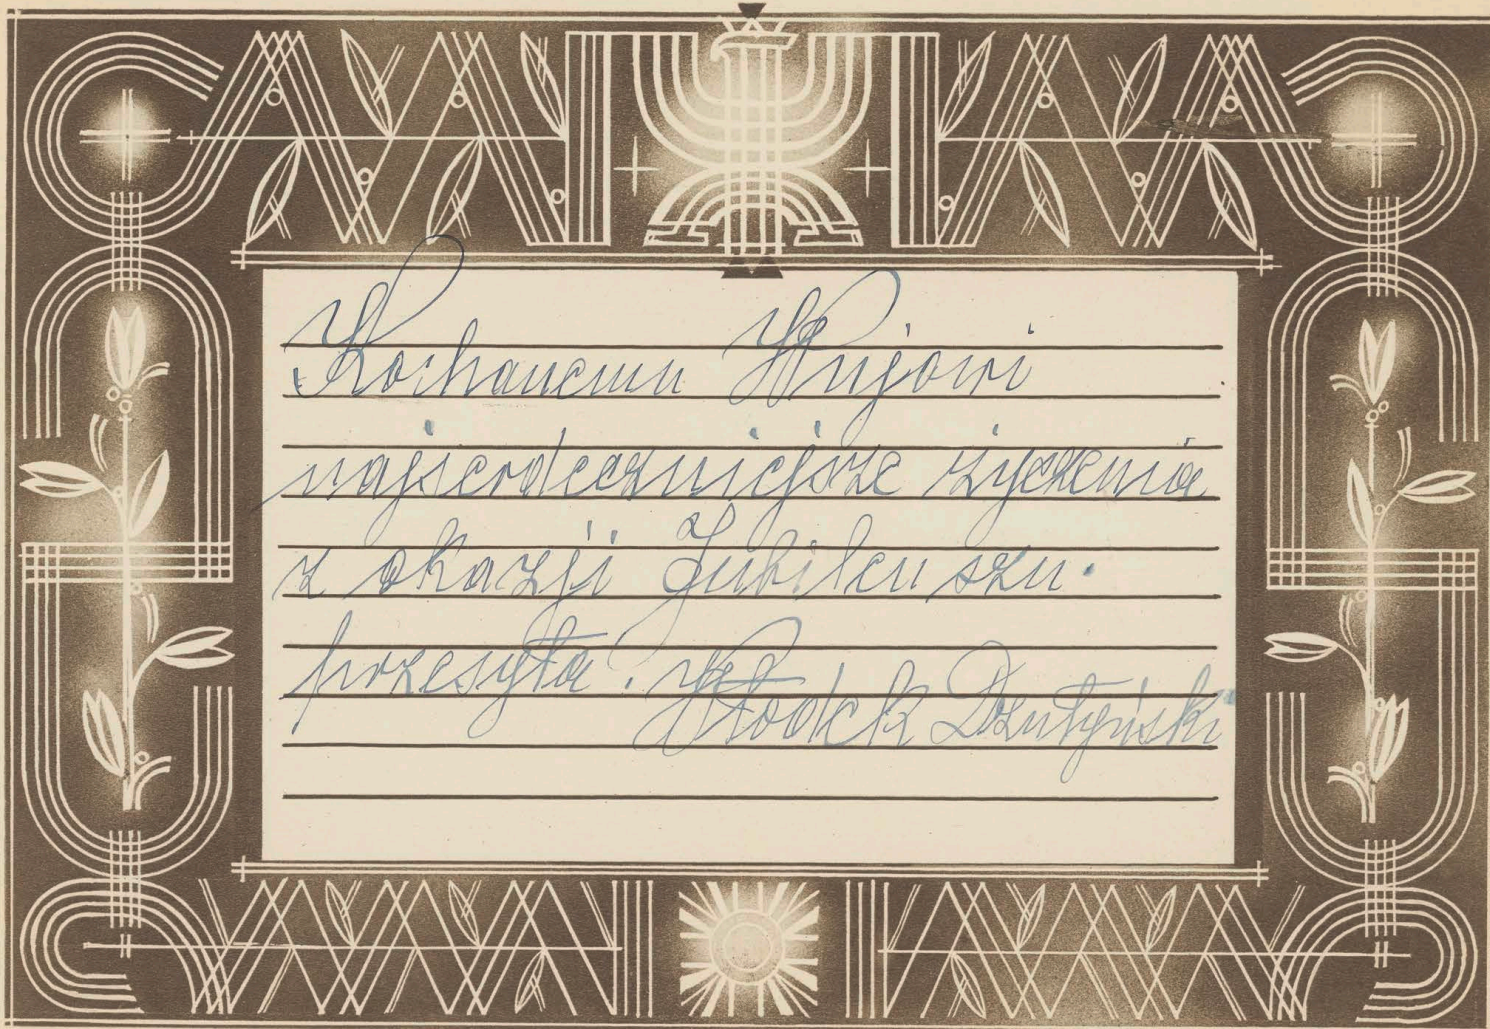 Kochanemu Wujowi
najserdeczniejsze życzenia
z okazji Jubileuszu.
przesyła. Włodek Dzutyński